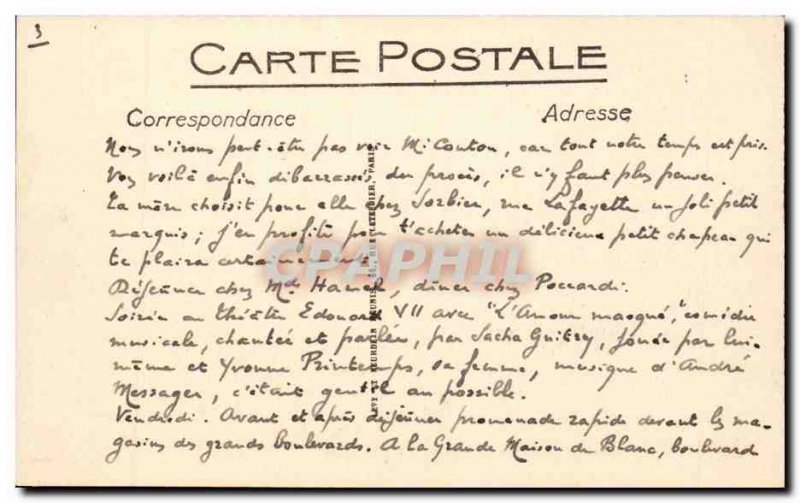 3
CARTE POSTALE
Correspondance
Adresse
Nous n'irons peut-être pas voir Mr Couton, car tout notre temps est pris.
Vous voilà enfin débarrassés du procès, il n'y faut plus penser.
Ta mère choisit pour elle chez Sorbier, rue Lafayette un joli petit
marquis; j'en profite pour t'acheter un délicieux petit chapeau qui
te plaira certainement.
Déjeuner chez Mde Hamel, dîner chez Poccardi.
Soirée au théâtre Edouard VII avec "L'Amour masqué," comédie
musicale, chantée et parlée, par Sacha Guitry, jouée par lui-
même et Yvonne Printemps, sa femme, musique d'André
Messager, c'était gentil au possible.
Vendredi. Avant et après déjeuner promenade rapide devant les ma-
gasins des grands boulevards. A la Grande Maison de Blanc, boulevard
LEVY ET NEURDEIN REUNIS, 44, RUE LETELLIER, PARIS
CPAPHIL